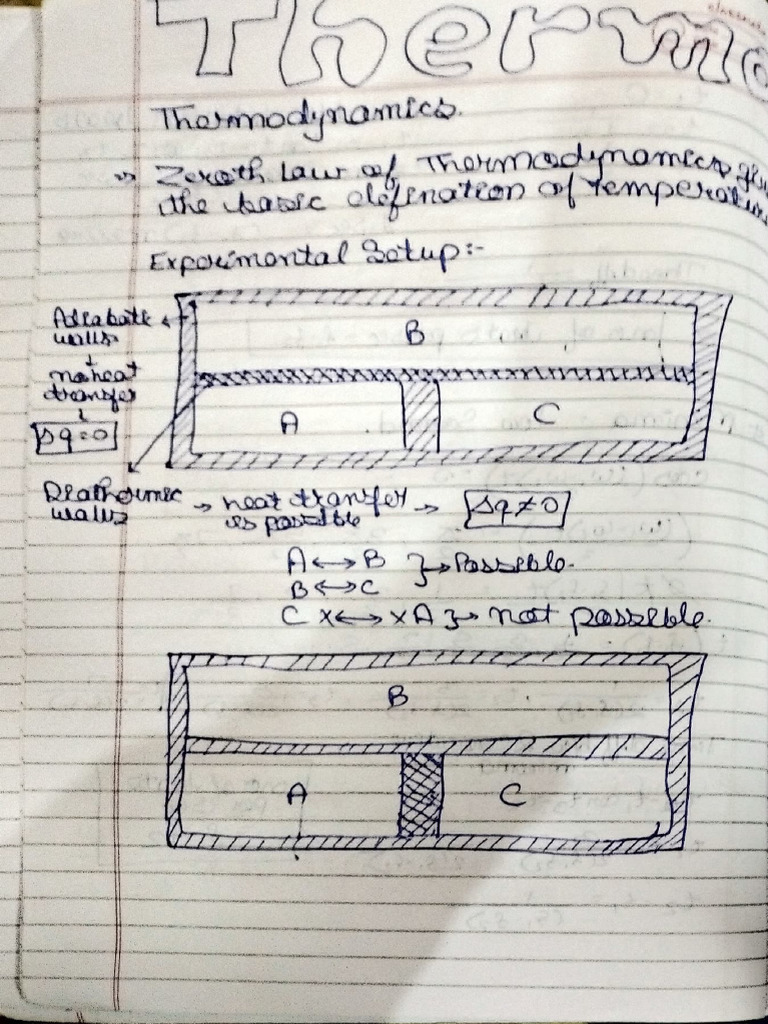 Thermo
Thermodynamics.
⇒ Zeroth law of Thermodynamics
the basic defination of temperature
Experimental Setup:-
Adiabatic walls
↓
no heat transfer
↓
Δq=0
B
A
C
Diathermic walls → heat transfer is possible → Δq≠0
A ↔ B
B ↔ C } → Possible.
C x↔x A } → not possible.
B
A
C